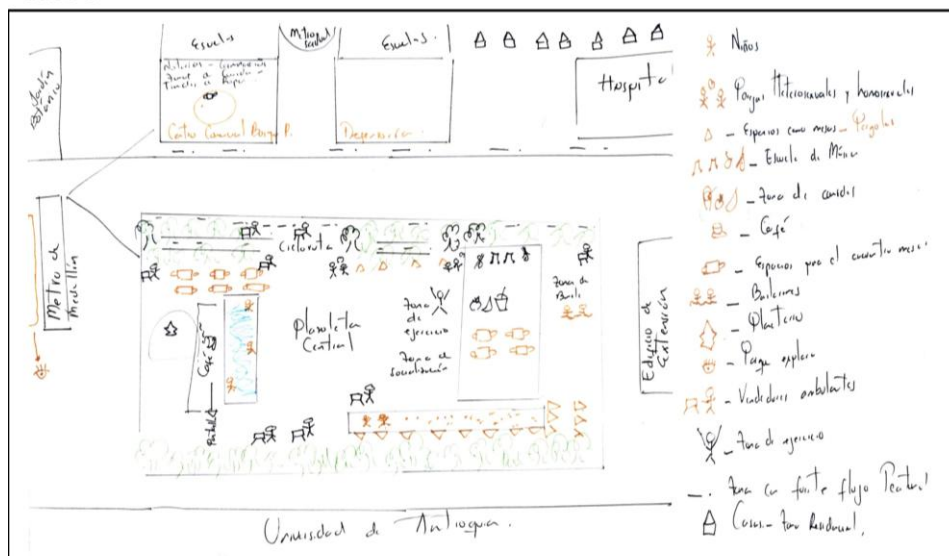 Escuelas
Metro
Escuelas.
Jardín
Botánico
Hospital
Centro Comercial Bosque P.
Metro de
Medellín
Cicloruta
Café
Plazoleta
Central
Zona
de
ejercicio
Zona de
socialización
Zona de
Baile
Edificio de
Extensión
Pantalla
Universidad de Antioquia.
Niños
Parejas Heterosexuales y homosexuales
- Espacios como mesas - Pérgolas
- Escuela de Música
- Zona de comidas
- Café
- Espacios para el encuentro mesas
- Bailarines
- Planetario
- Parque explora
- Vendedores ambulantes
- Zona de ejercicio
- Zona con fuerte flujo Peatonal
Casas - Zona Residencial.